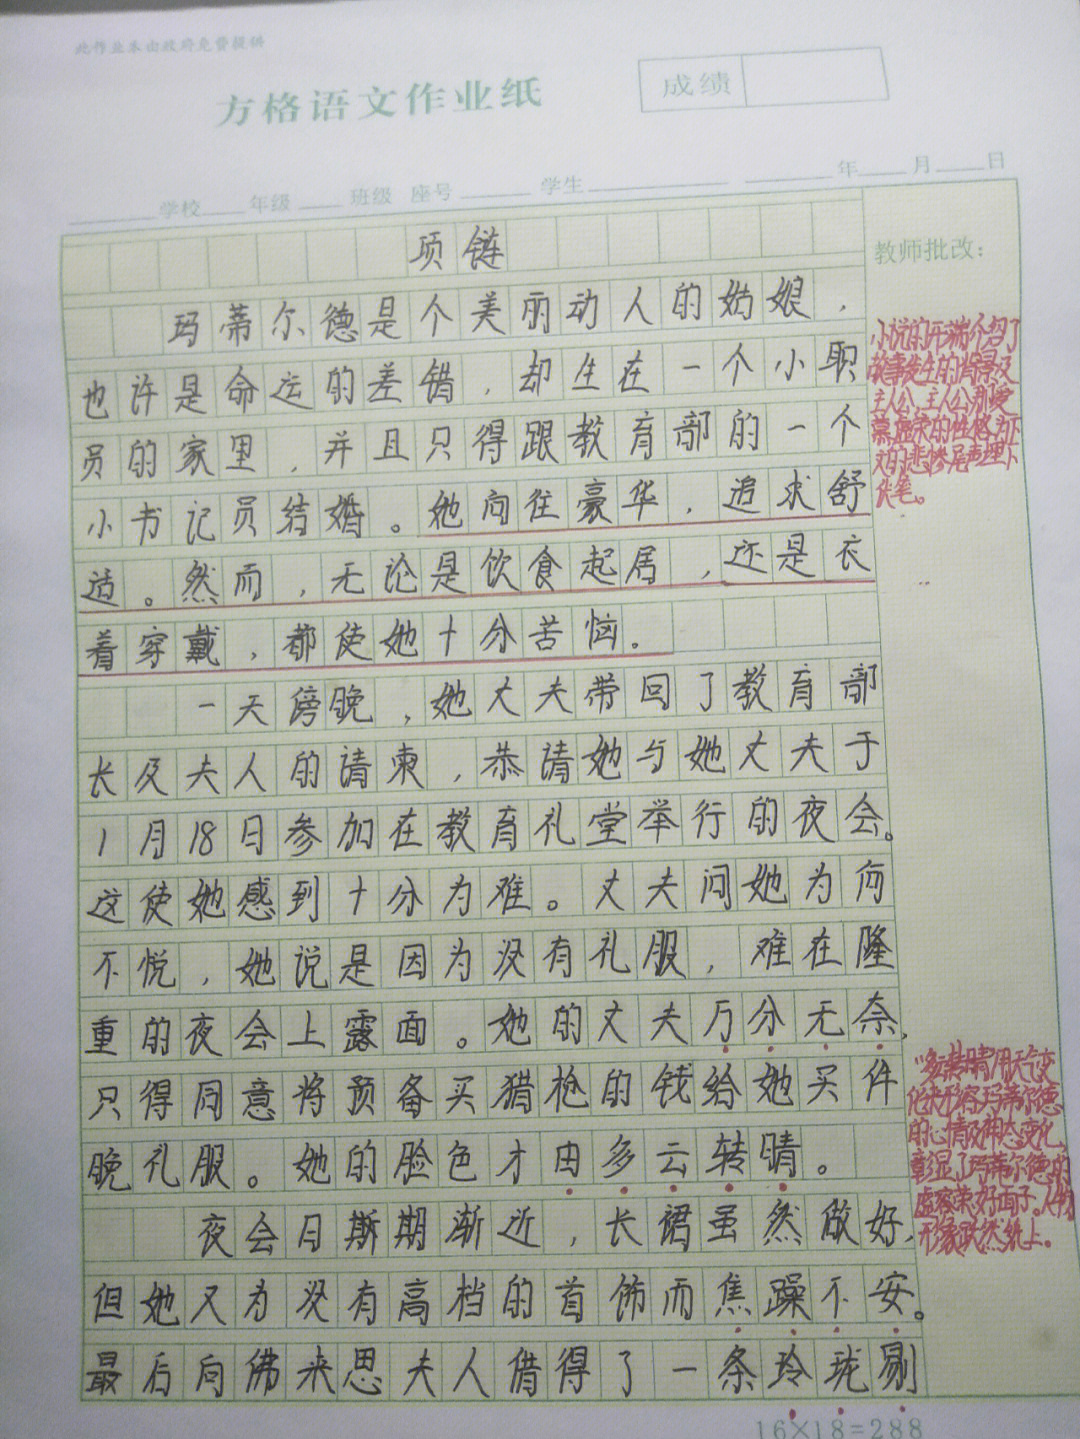 此作业本由政府免费提供
方格语文作业纸
成绩
学校 年级 班级 座号 学生 年 月 日
教师批改：
项链
玛蒂尔德是个美丽动人的姑娘，
也许是命运的差错，却生在一个小职
员的家里，并且只得跟教育部的一个
小书记员结婚。她向往豪华，追求舒
适。然而，无论是饮食起居，还是衣
着穿戴，都使她十分苦恼。
一天傍晚，她丈夫带回了教育部
长及夫人的请柬，恭请她与她丈夫于
1月18日参加在教育礼堂举行的夜会。
这使她感到十分为难。丈夫问她为何
不悦，她说是因为没有礼服，难在隆
重的夜会上露面。她的丈夫万分无奈，
只得同意将预备买猎枪的钱给她买件
晚礼服。她的脸色才由多云转晴。
夜会日斯期渐近，长裙虽然做好，
但她又为没有高档的首饰而焦躁不安。
最后向佛来思夫人借得了一条玲珑剔
小说的开端介绍了
故事发生的背景及
主人公,主人公那爱
慕虚荣的性格为下
文的悲惨尾声埋下
伏笔。
"多云转晴"用天气变
化来形容玛蒂尔德
的心情及神态变化,
彰显了玛蒂尔德的
虚荣 好面子。人物
形象跃然纸上。
16×18=288